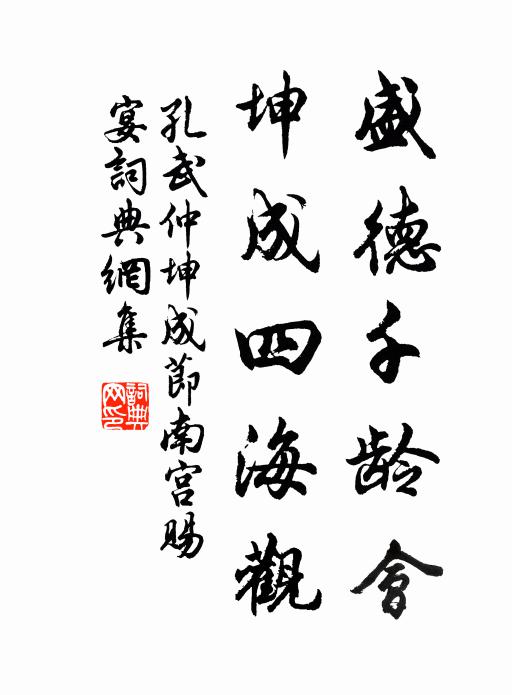 盛德千龄會
坤成四海觀
孔武仲坤成節南宫賜
宴詞典網集
詞典網印